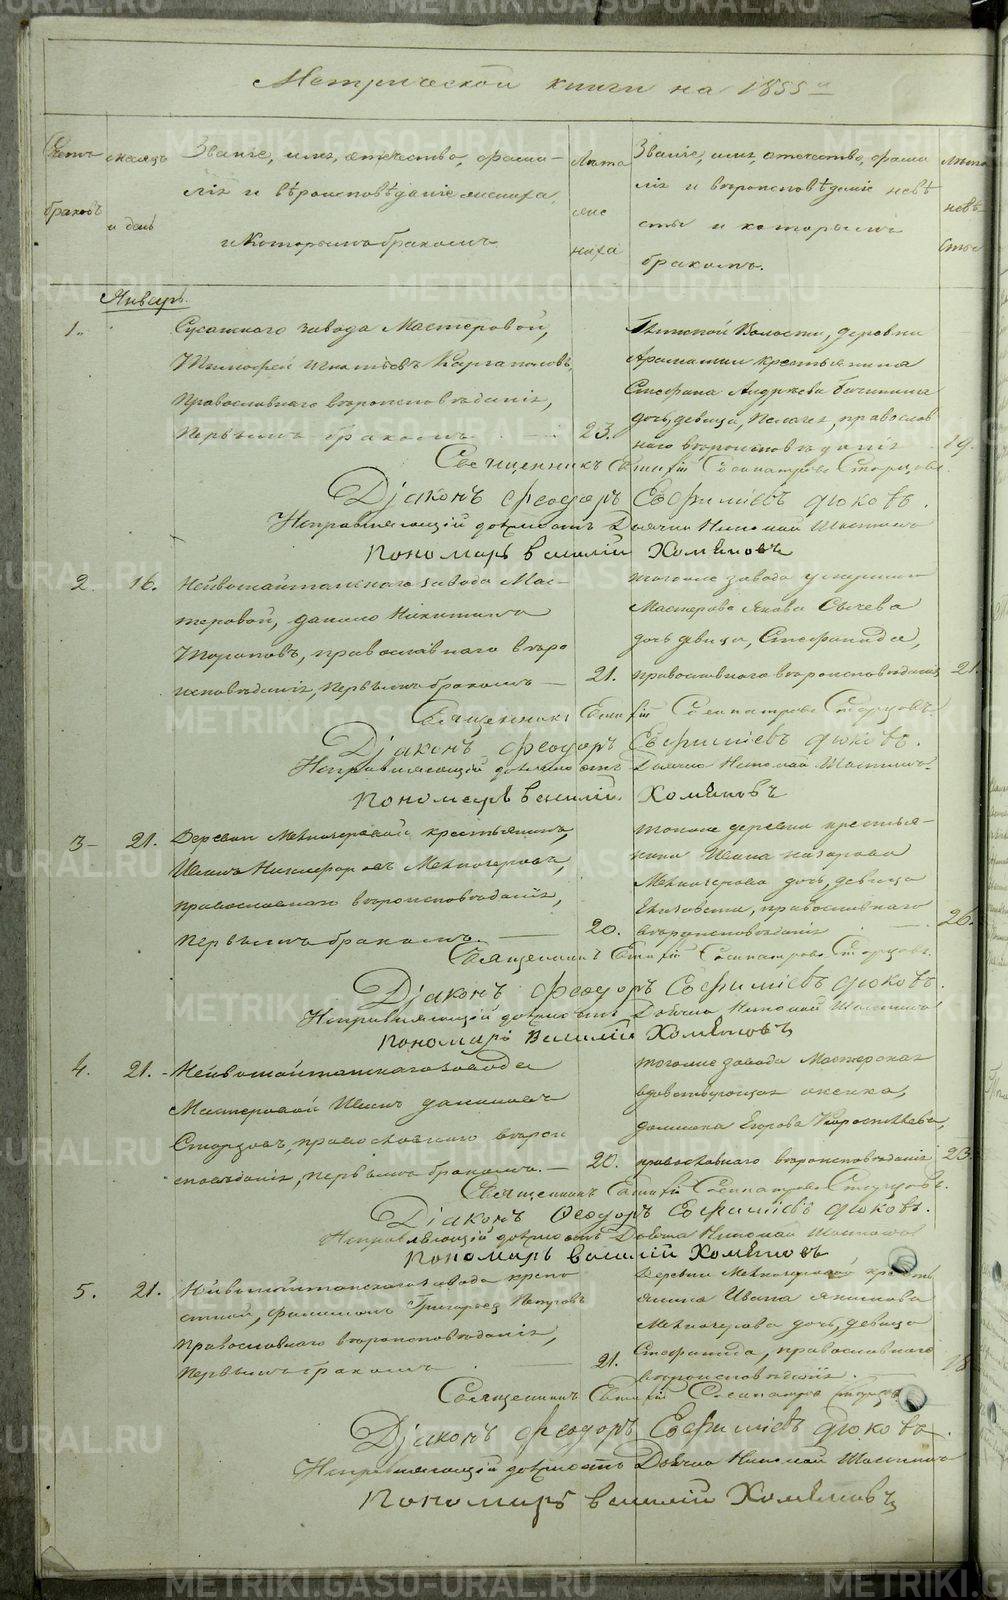 Метрической книги на 1855й
Счетъ
браковъ
месяцъ
и день
Званіе, имя, отечество, фами-
лія и вѣроисповѣданіе жениха,
и которымъ бракомъ
Лѣта
же
ниха
Званіе, имя, отечество, фами
лія и вѣроисповѣданіе невѣ
сты и которымъ
бракомъ.
Лѣта
невѣ
сты
Январь.
1.
завода Мастеровой,
Тимофей Игнатьевъ Каргаполовъ,
Православнаго вѣроисповѣданія,
Первымъ бракомъ
23.
волости, деревни
крестьянина
Стефана Андреева
дочь, девица, Пелагея, православ
наго вѣроисповѣданія
19.
Священникъ Евтифій Сосипатровъ Старцовъ.
Діаконъ Феодоръ Ефиміевъ Дюковъ.
Исправляющій должность Дьячка Николай
Пономарь Василій Хомяковъ
2.
16.
Нейвошайтанскаго завода Мас-
теровой, Данило Никитинъ
Топоповъ, православнаго вѣро
исповѣданія, первымъ бракомъ
21.
тогоже завода умершаго
Мастерова Якова Сычева
дочь девица, Стефанида,
православнаго вѣроисповѣданія
21.
Священникъ Евтифій Сосипатровъ Старцовъ
Діаконъ Феодоръ Ефиміевъ Дюковъ.
Исправляющій должность Дьячка Николай
Пономарь Василій Хомяковъ
3-
21.
Деревни Мелкозеровой крестьянинъ,
Иванъ Никифоровъ Мелкозеровъ,
православнаго вѣроисповѣданія,
первымъ бракомъ.
20.
тоюже деревни крестья-
нина Ивана Назарова
Мелкозерова дочь, девица
Елизавета, православнаго
вѣроисповѣданія
26.
Священникъ Евтифій Сосипатровъ Старцовъ.
Діаконъ Феодоръ Ефиміевъ Дюковъ.
Исправляющій должность Дьячка Николай
Пономарь Василій Хомяковъ
4.
21.
Нейвошайтанскаго завода
Мастеровой Иванъ Даниловъ
Старцовъ, православнаго вѣрои
споведанія, первымъ бракомъ.
20.
тогоже завода Мастерская
вдовствующая женка,
Домника Егорова Коростелева,
православнаго вѣроисповѣданія
23.
Священникъ Евтифій Сосипатровъ Старцовъ.
Діаконъ Феодоръ Ефиміевъ Дюковъ.
Исправляющій должность Дьячка Николай
Пономарь Василій Хомяковъ
5.
21.
Нейвошайтанскаго завода крепо
стной, Филимонъ Григорьевъ Петровъ
Православнаго вѣроисповѣданія,
первымъ бракомъ
21.
Деревни Мелкозеровой кресть
янина Ивана Якимова
Мелкозерова дочь, девица
Стефанида, православнаго
вѣроисповѣданія.
18
Священникъ Евтифій Сосипатровъ Старцовъ
Діаконъ Феодоръ Ефиміевъ Дюковъ.
Исправляющій должность Дьячка Николай
Пономарь Василій Хомяковъ
METRIKI.GASO-URAL.RU